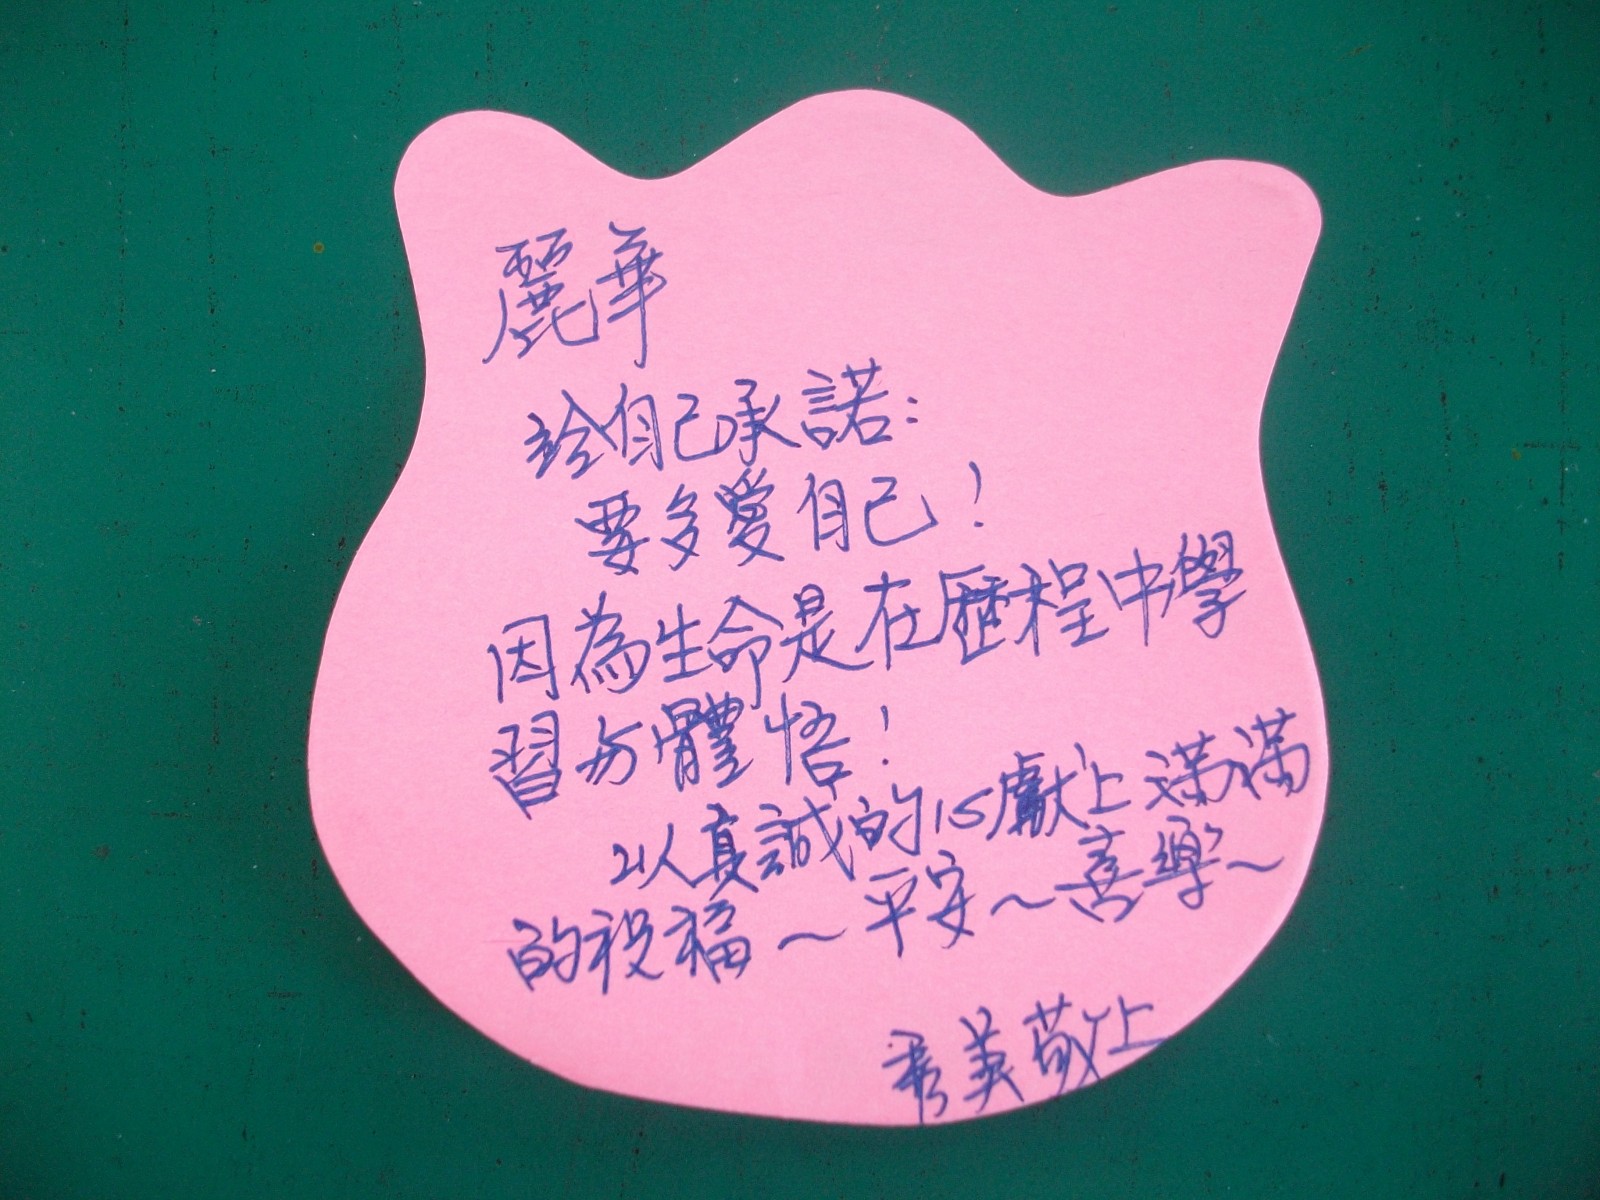 麗華
給自己承諾:
要多愛自己!
因為生命是在歷程中學
習与體悟!
以真誠的心獻上滿滿
的祝福~平安~喜樂~
秀美敬上